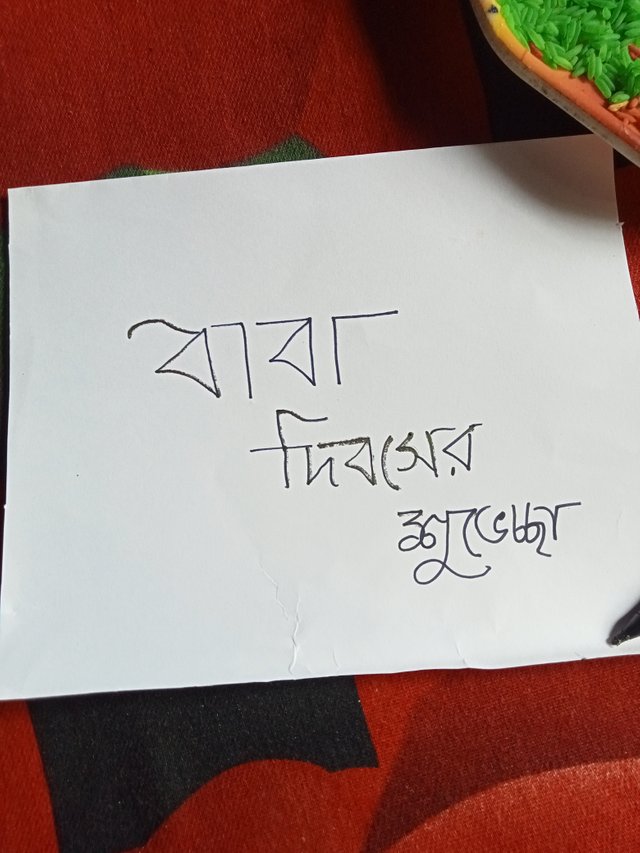 বাবা
দিবসের
শুভেচ্ছা